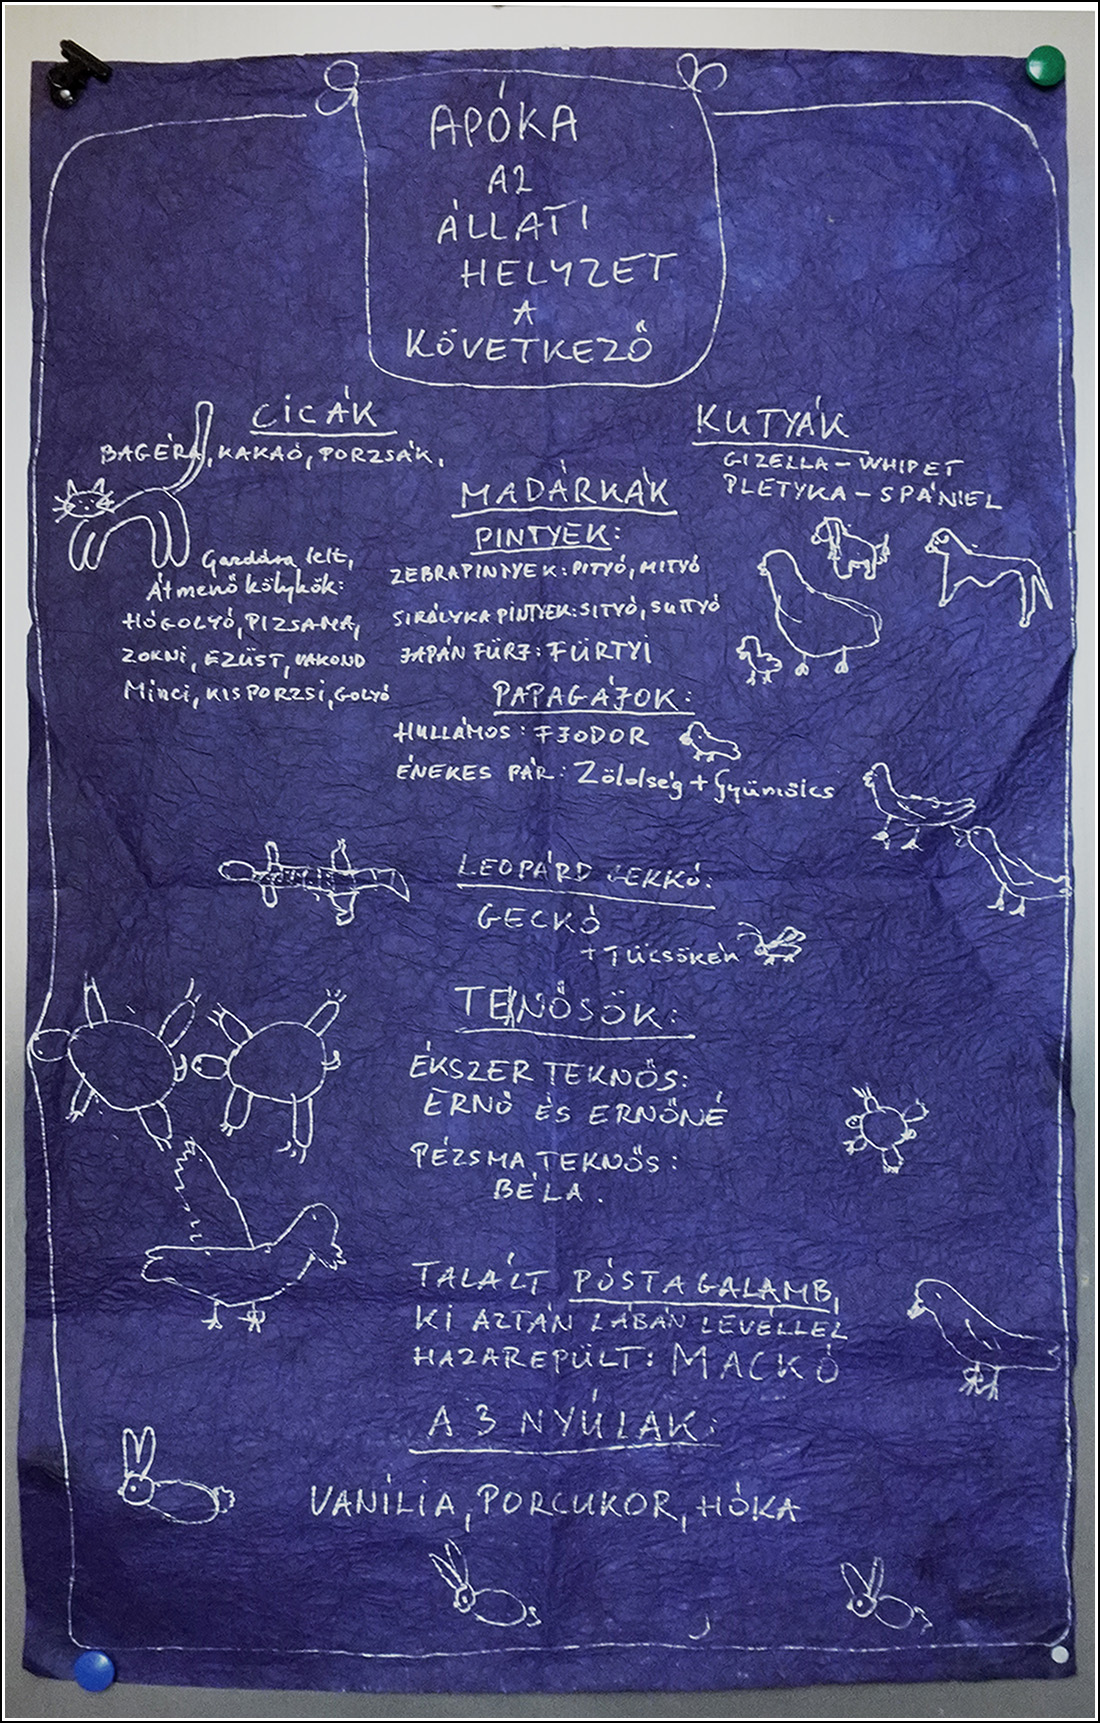 APÓKA
AZ
ÁLLATI
HELYZET
A
KÖVETKEZŐ
CICÁK
BAGÉRA, KAKAÓ, PORZSÁK,
Gazdára lelt,
Átmenő kölykök:
HÓGOLYÓ, PIZSAMA,
ZOKNI, EZÜST, VAKOND
Minci, KISPORZSI, GOLYÓ
KUTYÁK
GIZELLA – WHIPET
PLETYKA – SPÁNIEL
MADÁRKÁK
PINTYEK:
ZEBRAPINTYEK: PITYÓ, MITYÓ
SIRÁLYKA PINTYEK: SITYÓ, SUTTYÓ
JAPÁN FÜRJ: FÜRTYI
PAPAGÁJOK:
HULLÁMOS: FJODOR
ÉNEKES PÁR: Zöldség + Gyümölcs
LEOPÁRD GEKKÓ:
GECKÓ
+ TÜCSÖKEN
TEKNŐSÖK:
ÉKSZER TEKNŐS:
ERNŐ ÉS ERNŐNÉ
PÉZSMA TEKNŐS:
BÉLA.
TALÁLT PÓSTAGALAMB,
KI AZTÁN LÁBÁN LEVÉLLEL
HAZAREPÜLT: MACKÓ
A 3 NYÚLAK:
VANÍLIA, PORCUKOR, HÓKA